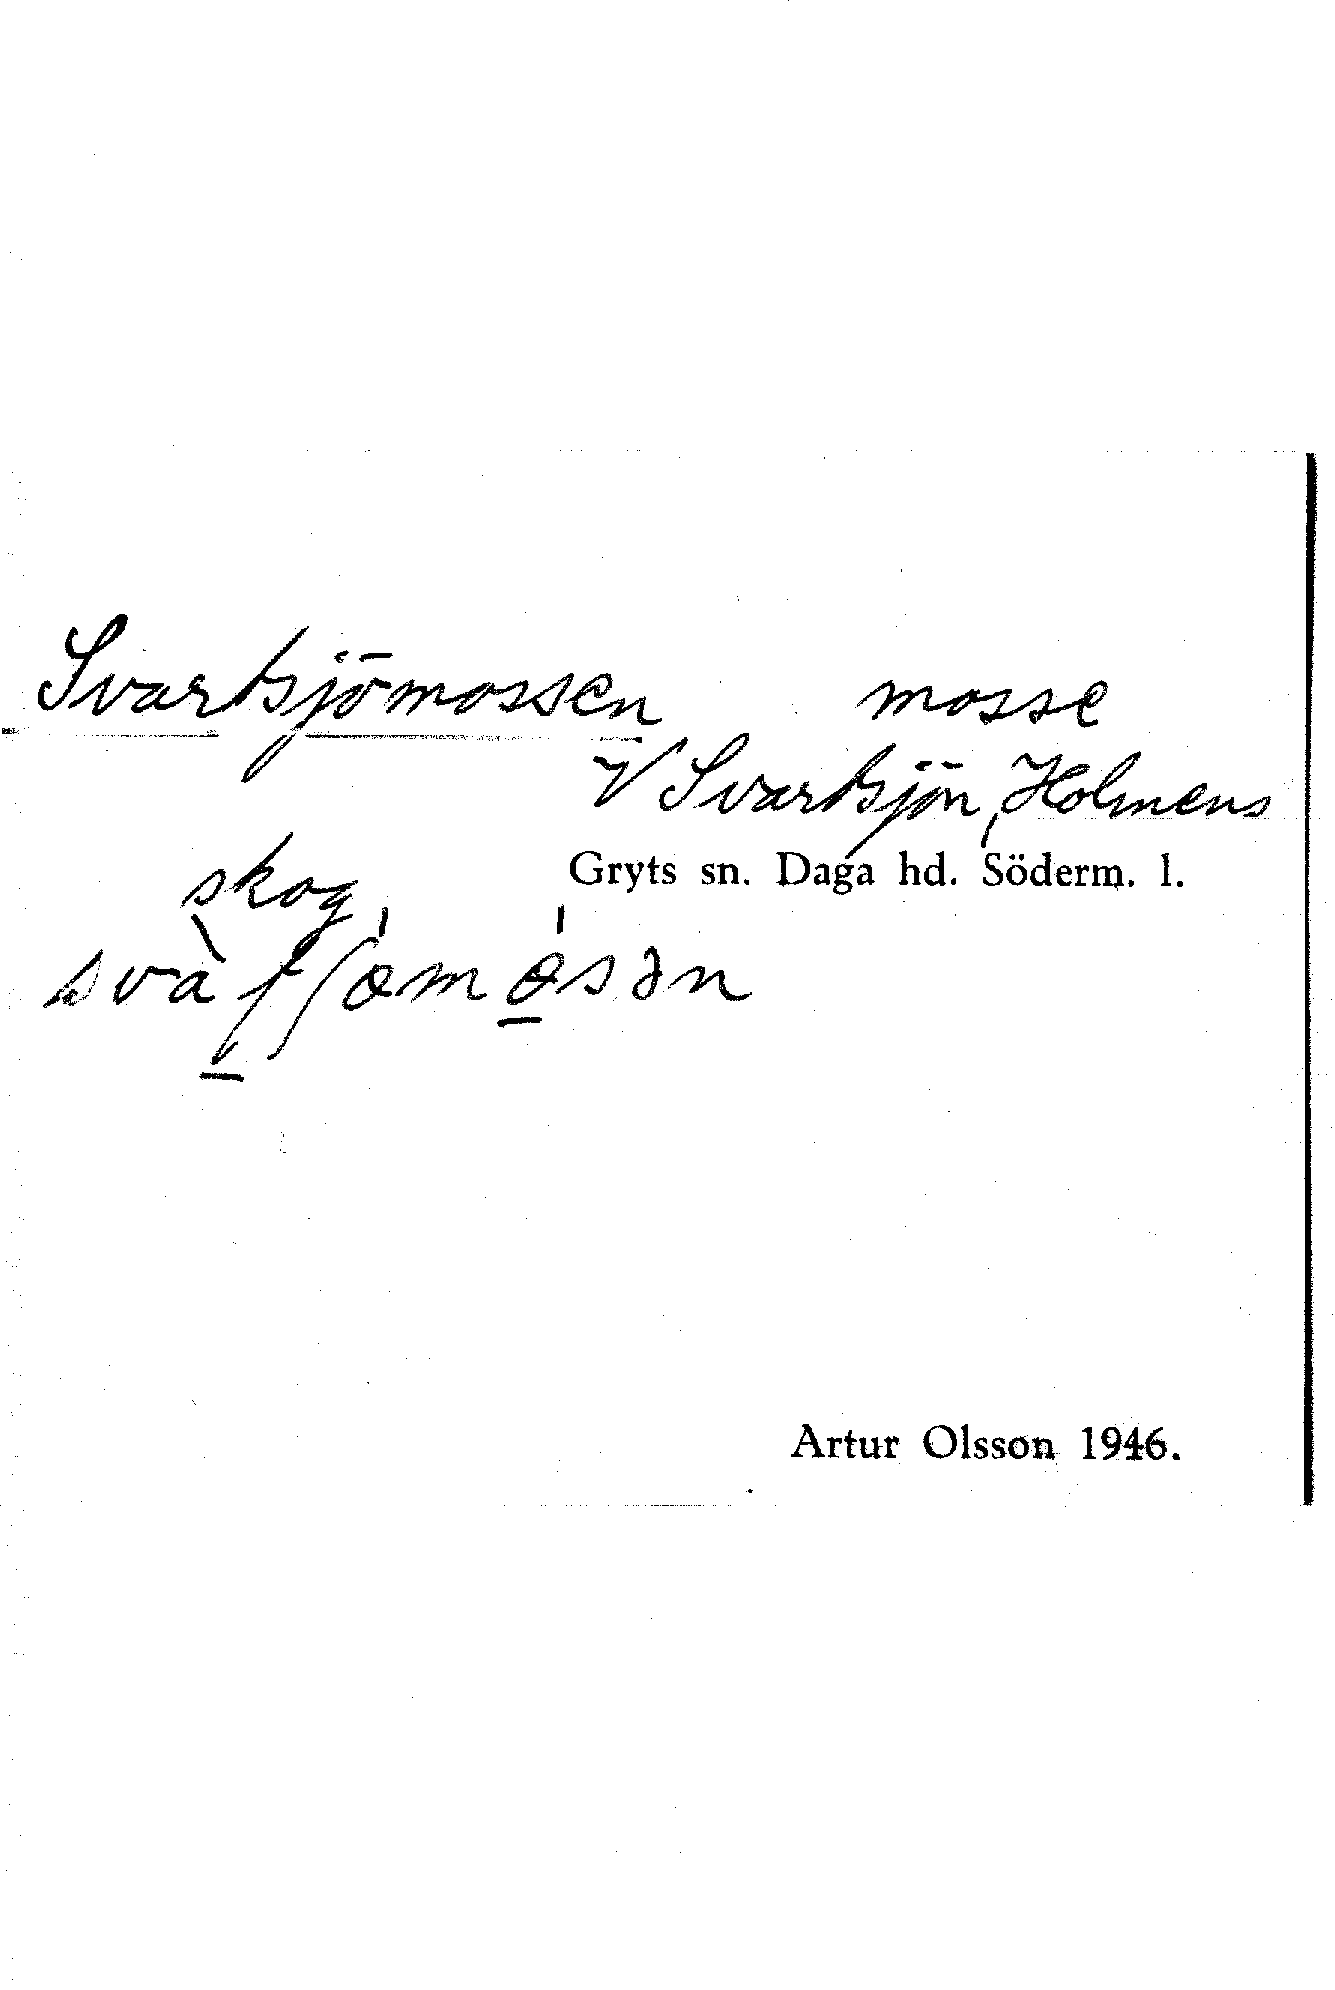 Svartsjömossen mosse
V Svartsjön, Holmens
skog
Gryts sn. Daga hd. Söderm. l.
Artur Olsson 1946.